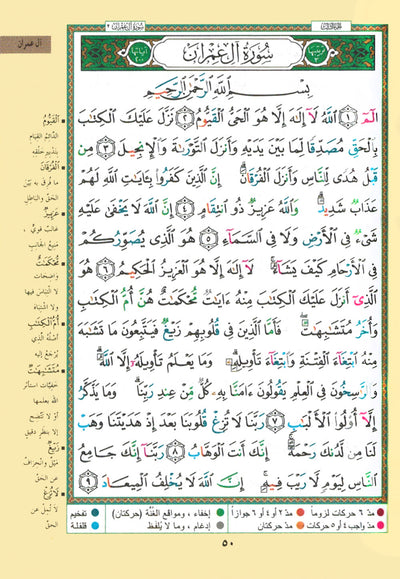 آل عمران
الجزء الثالث
سُورَةُ آلِ عِمْرَانَ ٣
ترتيبها ٣
سُورَةُ آلِ عِمْرَانَ
آياتها ٢٠٠
بِسْمِ اللَّهِ الرَّحْمَٰنِ الرَّحِيمِ
الٓمٓ ١ ٱللَّهُ لَآ إِلَٰهَ إِلَّا هُوَ ٱلْحَىُّ ٱلْقَيُّومُ ٢ نَزَّلَ عَلَيْكَ ٱلْكِتَٰبَ
بِٱلْحَقِّ مُصَدِّقًا لِّمَا بَيْنَ يَدَيْهِ وَأَنزَلَ ٱلتَّوْرَىٰةَ وَٱلْإِنجِيلَ ٣ مِن
قَبْلُ هُدًى لِّلنَّاسِ وَأَنزَلَ ٱلْفُرْقَانَ ۗ إِنَّ ٱلَّذِينَ كَفَرُوا۟ بِـَٔايَٰتِ ٱللَّهِ لَهُمْ
عَذَابٌ شَدِيدٌ ۗ وَٱللَّهُ عَزِيزٌ ذُو ٱنتِقَامٍ ٤ إِنَّ ٱللَّهَ لَا يَخْفَىٰ عَلَيْهِ
شَىْءٌ فِى ٱلْأَرْضِ وَلَا فِى ٱلسَّمَآءِ ٥ هُوَ ٱلَّذِى يُصَوِّرُكُمْ
فِى ٱلْأَرْحَامِ كَيْفَ يَشَآءُ ۚ لَآ إِلَٰهَ إِلَّا هُوَ ٱلْعَزِيزُ ٱلْحَكِيمُ ٦ هُوَ
ٱلَّذِىٓ أَنزَلَ عَلَيْكَ ٱلْكِتَٰبَ مِنْهُ ءَايَٰتٌ مُّحْكَمَٰتٌ هُنَّ أُمُّ ٱلْكِتَٰبِ
وَأُخَرُ مُتَشَٰبِهَٰتٌ ۖ فَأَمَّا ٱلَّذِينَ فِى قُلُوبِهِمْ زَيْغٌ فَيَتَّبِعُونَ مَا تَشَٰبَهَ
مِنْهُ ٱبْتِغَآءَ ٱلْفِتْنَةِ وَٱبْتِغَآءَ تَأْوِيلِهِۦ ۗ وَمَا يَعْلَمُ تَأْوِيلَهُۥٓ إِلَّا ٱللَّهُ ۗ
وَٱلرَّٰسِخُونَ فِى ٱلْعِلْمِ يَقُولُونَ ءَامَنَّا بِهِۦ كُلٌّ مِّنْ عِندِ رَبِّنَا ۗ وَمَا يَذَّكَّرُ
إِلَّآ أُو۟لُوا۟ ٱلْأَلْبَٰبِ ٧ رَبَّنَا لَا تُزِغْ قُلُوبَنَا بَعْدَ إِذْ هَدَيْتَنَا وَهَبْ
لَنَا مِن لَّدُنكَ رَحْمَةً ۚ إِنَّكَ أَنتَ ٱلْوَهَّابُ ٨ رَبَّنَآ إِنَّكَ جَامِعُ
ٱلنَّاسِ لِيَوْمٍ لَّا رَيْبَ فِيهِ ۚ إِنَّ ٱللَّهَ لَا يُخْلِفُ ٱلْمِيعَادَ ٩
القَيُّومُ
الدَّائِمُ القِيَامِ
بتدبيرِ خلقِهِ
الفُرْقَانَ
ما فُرِقَ به بَيْنَ
الحَقِّ والبَاطِلِ
عَزِيزٌ
غالبٌ قويٌّ،
منيعُ الجانب
مُحْكَمَاتٌ
واضحات
لا التباسَ فيها
ولا اشتباهَ
أُمُّ الكِتَابِ
أصْلُه الذي
يُرْجَعُ إليه
مُتَشَابِهَاتٌ
خفيّاتٌ استأثرَ
اللهُ بعلمها
أوْ لا تتَّضح
إلا بنظرٍ دقيقٍ
زَيْغٌ
مَيْلٌ وانحرافٌ
عن الحقِّ
لَا تُزِغْ
لا تُمِلْ عن
الحقِّ
مدّ ٦ حركات لزوماً
مدّ ٢ أو ٤ أو ٦ جوازاً
إخفاء، ومواقع الغُنَّة (حركتان)
تفخيم
مدّ واجب ٤ أو ٥ حركات
مدّ حركتان
إدغام، وما لا يُلفظ
قلقلة
٥٠